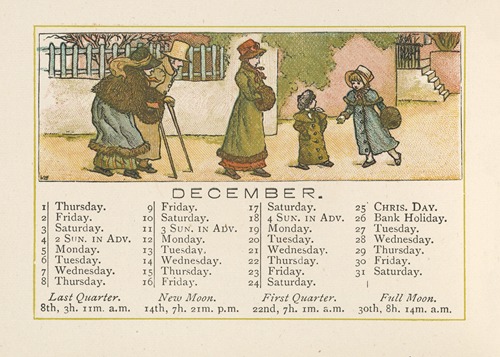 DECEMBER.
1 Thursday.
2 Friday.
3 Saturday.
4 2 SUN. IN ADV.
5 Monday.
6 Tuesday.
7 Wednesday.
8 Thursday.
9 Friday.
10 Saturday.
11 3 SUN. IN ADV.
12 Monday.
13 Tuesday.
14 Wednesday.
15 Thursday.
16 Friday.
17 Saturday.
18 4 SUN. IN ADV.
19 Monday.
20 Tuesday.
21 Wednesday.
22 Thursday.
23 Friday.
24 Saturday.
25 CHRIS. DAY.
26 Bank Holiday.
27 Tuesday.
28 Wednesday.
29 Thursday.
30 Friday.
31 Saturday.
Last Quarter.
8th, 3h. 11m. a.m.
New Moon.
14th, 7h. 21m. p.m.
First Quarter.
22nd, 7h. 1m. a.m.
Full Moon.
30th, 8h. 14m. a.m.